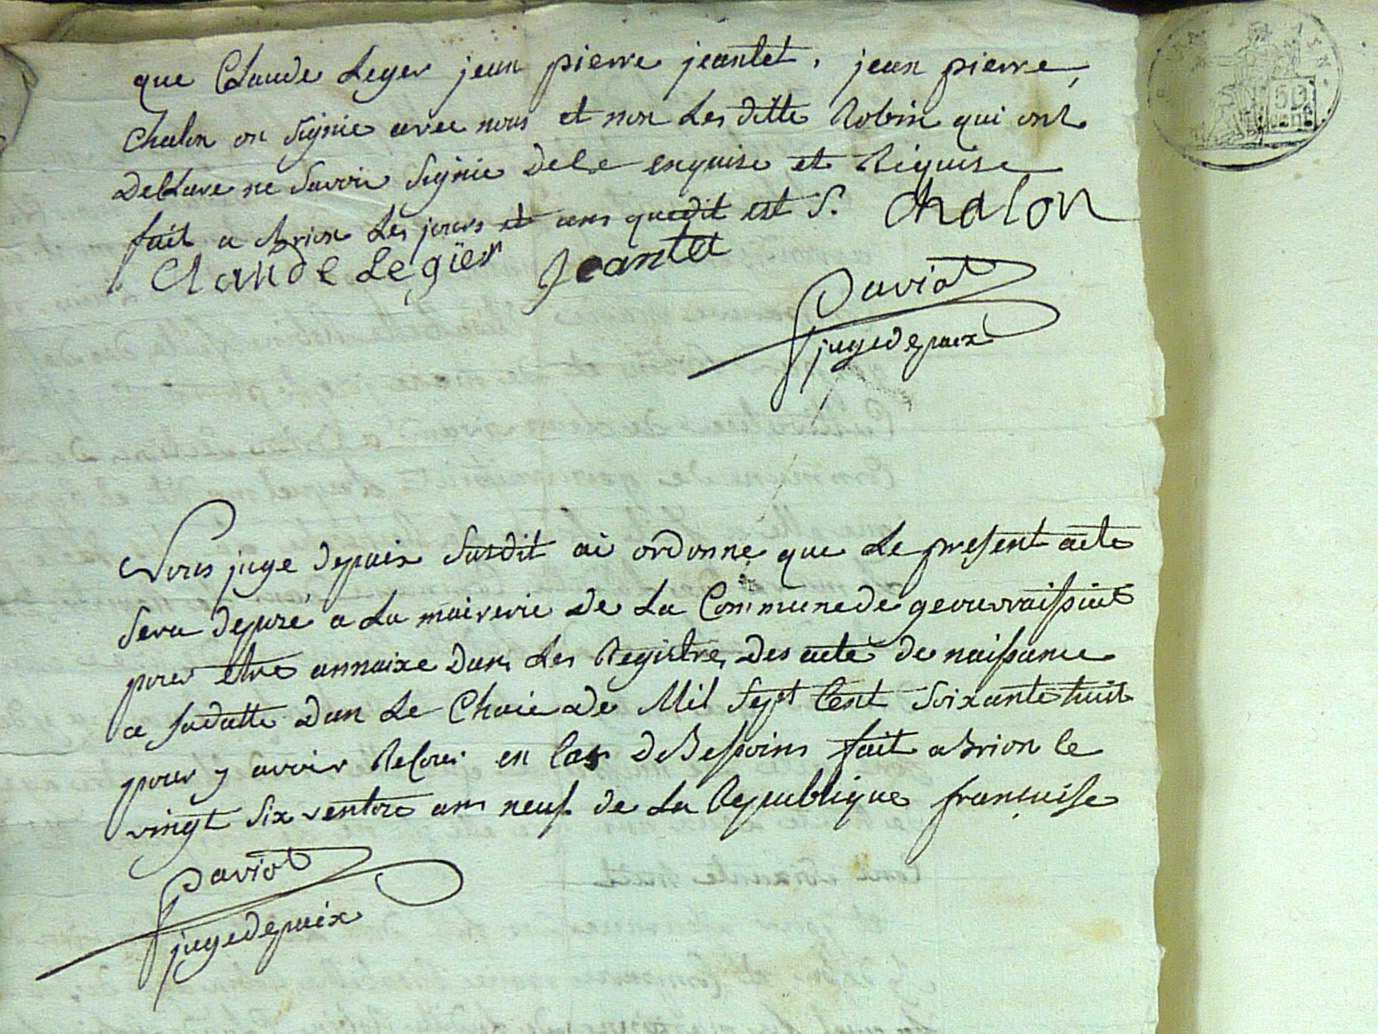 que Claude Leger jean pierre jeantet, jean pierre
Chalon on Signie avec nous et non Les ditte Robin qui ont
deClare ne Savoir Signie dele enquise et Requise
fait a Brion Les jours et ans que dit est S. Chalon
Claude Legier Jeantet
Daviot
juge de paix
Nous juge depaix Susdit ai ordonne que Le present acte
Sera depoze a La mairerie de La Commune de geouvraissiat
pour etre annaixe dans Les Registres des acte de naissance
a Sadatte dan Le Chaié de Mil Sept Cent Soixante huit
pour y avoir ReCour en Cas de Bessoins fait a Brion le
vingt Six ventose ans neuf de La Republique francaise
Daviot
juge de paix
50